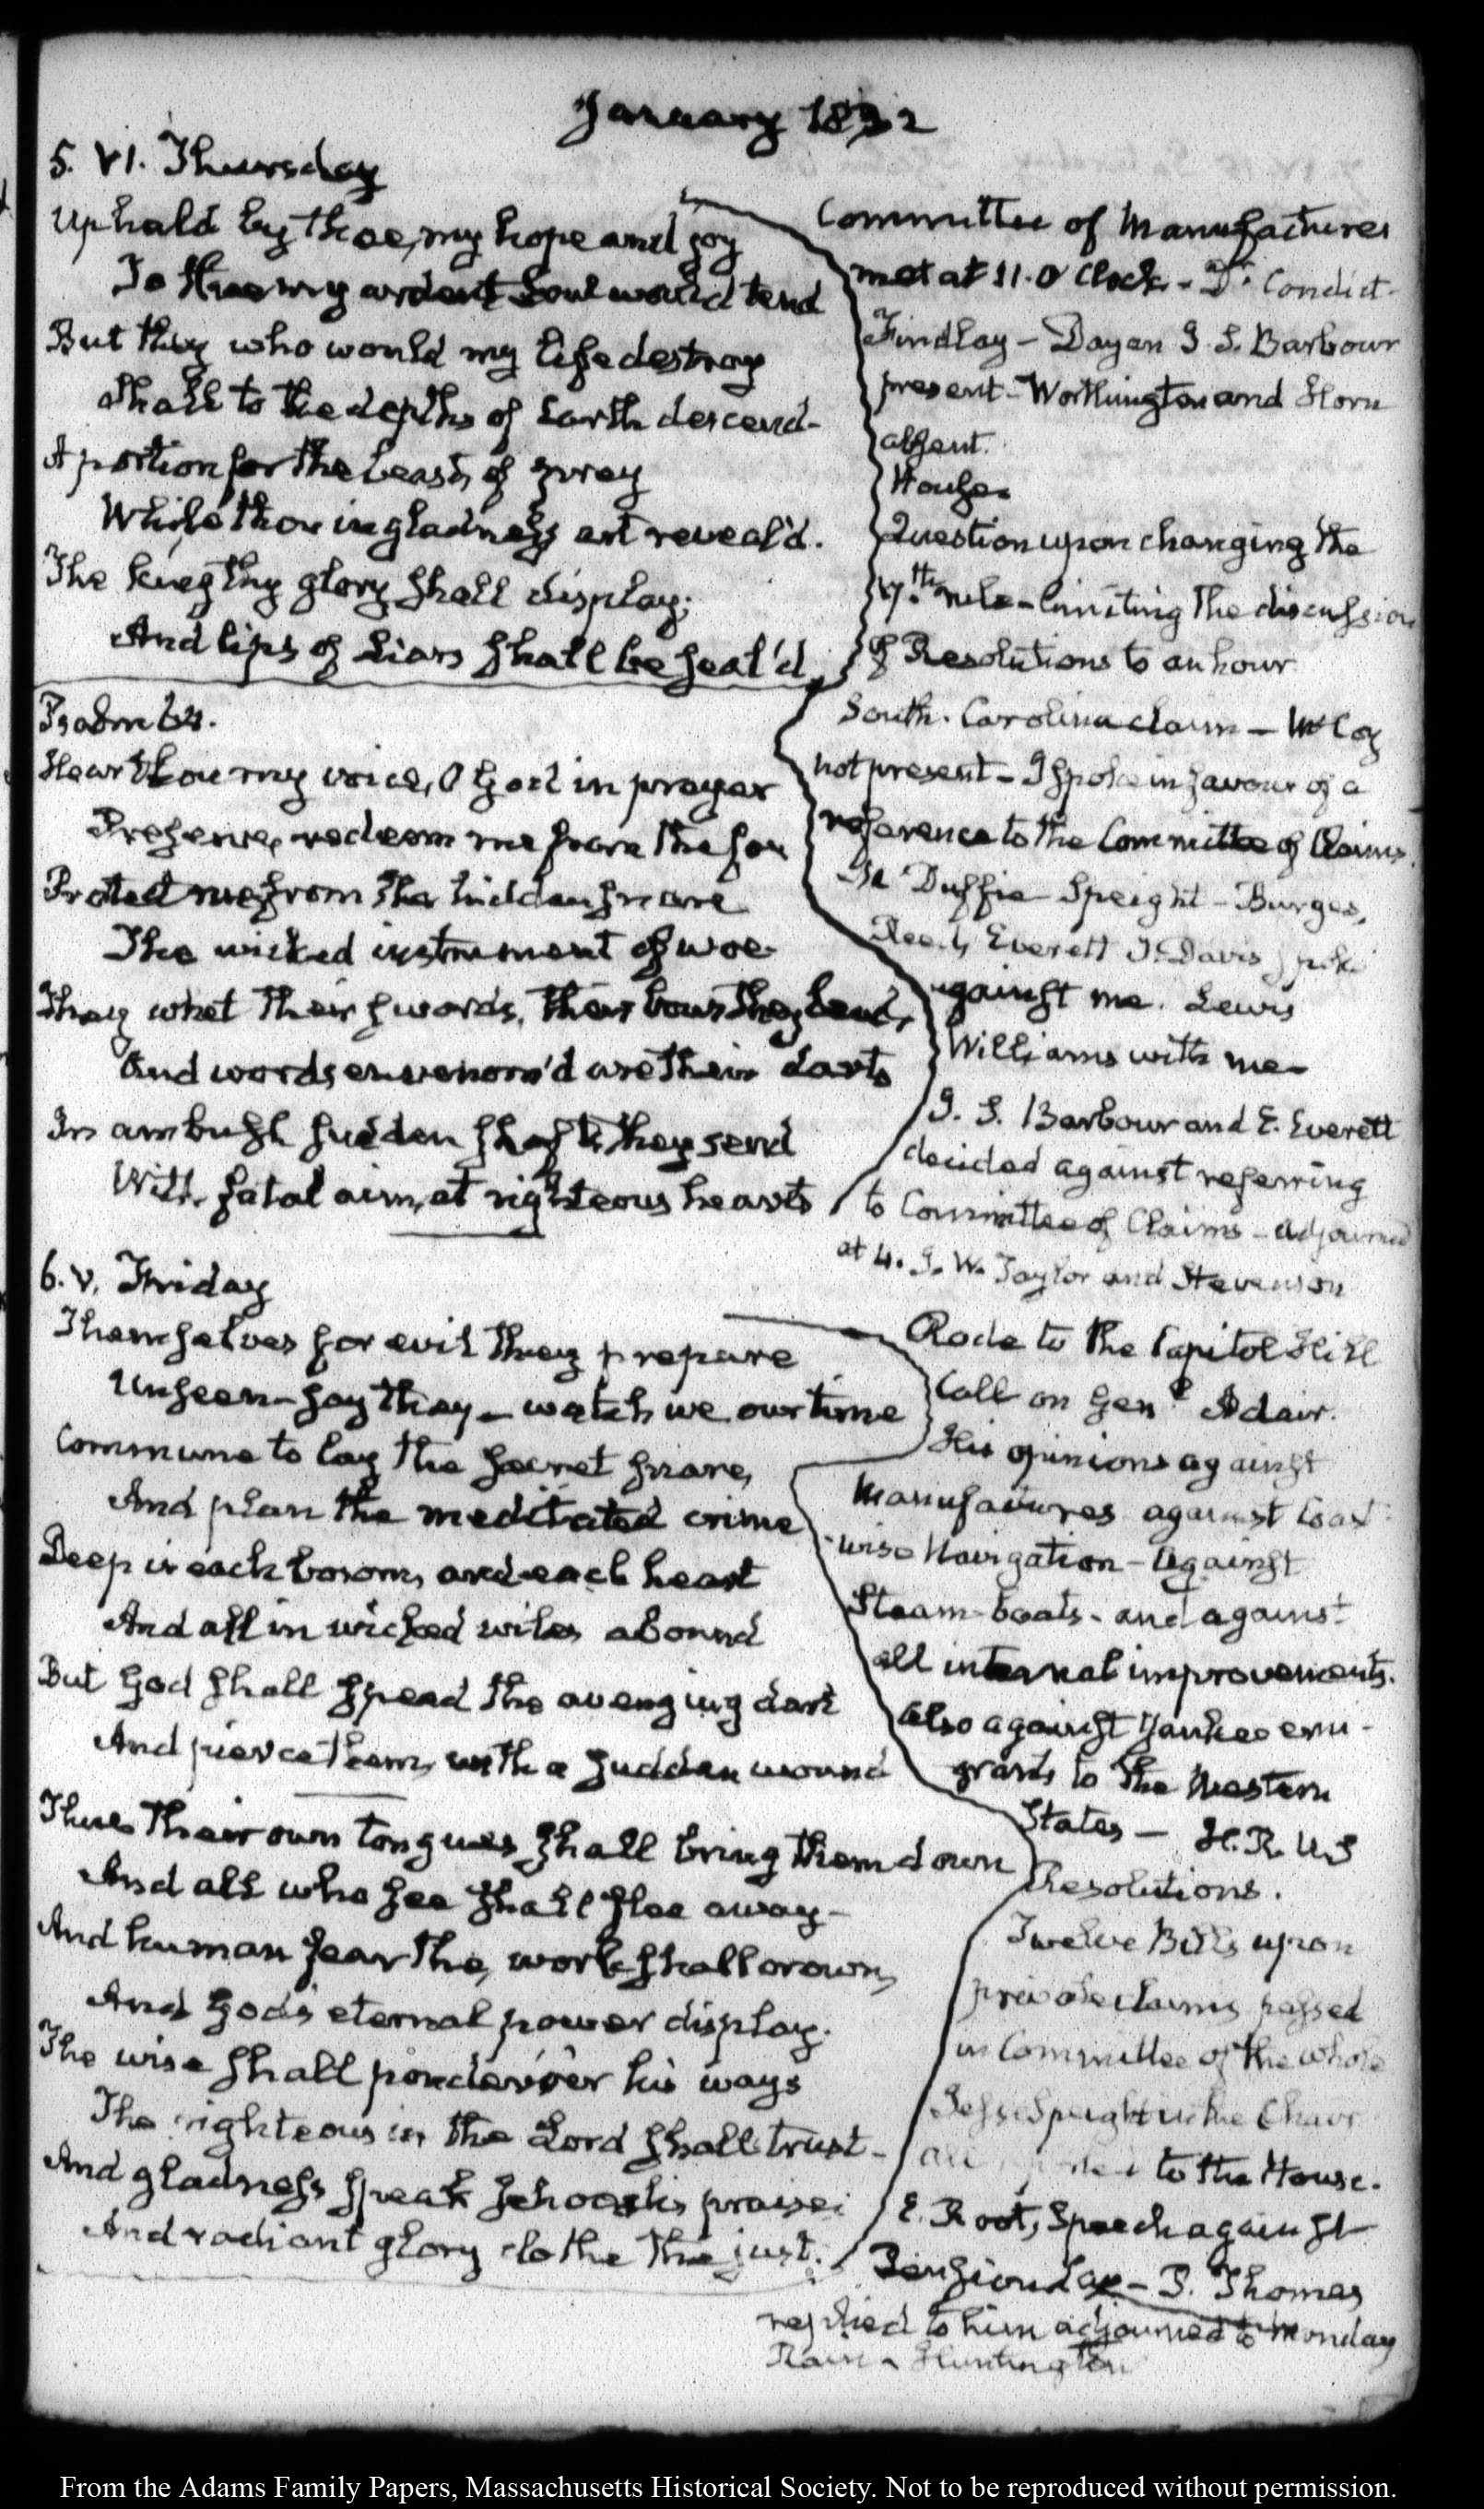 January 1832
5. VI. Thursday
Upheld by thee, my hope and joy
To thee my ardent Soul would tend
But they who would my life destroy
Shall to the depths of Earth descend-
A portion for the beasts of prey
While thou in gladness art reveal'd.
The king thy glory shall display;
And lips of Liars shall be seal'd.
Psalm 64.
Hear thou my voice, O God in prayer
Preserve, redeem me from the foe
Protect me from the hidden snare
The wicked instrument of woe-
They whet their swords, their bows they bend,
And words envenom'd are their darts
In ambush sudden shafts they send
With fatal aim, at righteous hearts
Committee of Manufactures
met at 11. O'Clock - Dr. Condict-
Findlay - Dayan J. S. Barbour
present - Worthington and Horn
absent.
House.
Question upon changing the
17.th rule - limiting the discussion
of Resolutions to an hour
South. Carolina claim - McCoy
not present - I spoke in favour of a
reference to the Committee of Claims.
Mc Duffie Speight - Burges,
Reed, Everett J. Davis spoke
against me. Lewis
Williams with me-
J. S. Barbour and E. Everett
decided against referring
to Committee of Claims - adjourned
at 4. J. W. Taylor and Stevenson
6. V. Friday
Themselves for evil they prepare
Unseen - say they - watch we our time
Commune to lay the secret snare,
And plan the meditated crime
Deep is each bosom, and each heart
And all in wicked wiles abound
But God shall spread the avenging dart
And pierce them, with a sudden wound
Thus their own tongues shall bring them down
And all who see shall flee away-
And human fear the work shall crown,
And God's eternal power display.
The wise shall ponder o'er his ways
The righteous in the Lord shall trust-
And gladness speak Jehovah's praise;
And radiant glory clothe the just.
Rode to the Capitol Hill
Call on Genl Adair.
His opinions against
Manufactures against Coast
-wise Navigation - Against
Steam-boats - and against
all internal improvements.
Also against Yankee emi-
grants to the Western
States - H. R. U.S
Resolutions.
Twelve Bills upon
private claims passed
in Committee of the whole
Jesse Speight in the Chair
all to the House.
E. Root's Speech against
Pension Law - P. Thomas
replied to him adjourned to Monday
Rain - Huntington
From the Adams Family Papers, Massachusetts Historical Society. Not to be reproduced without permission.